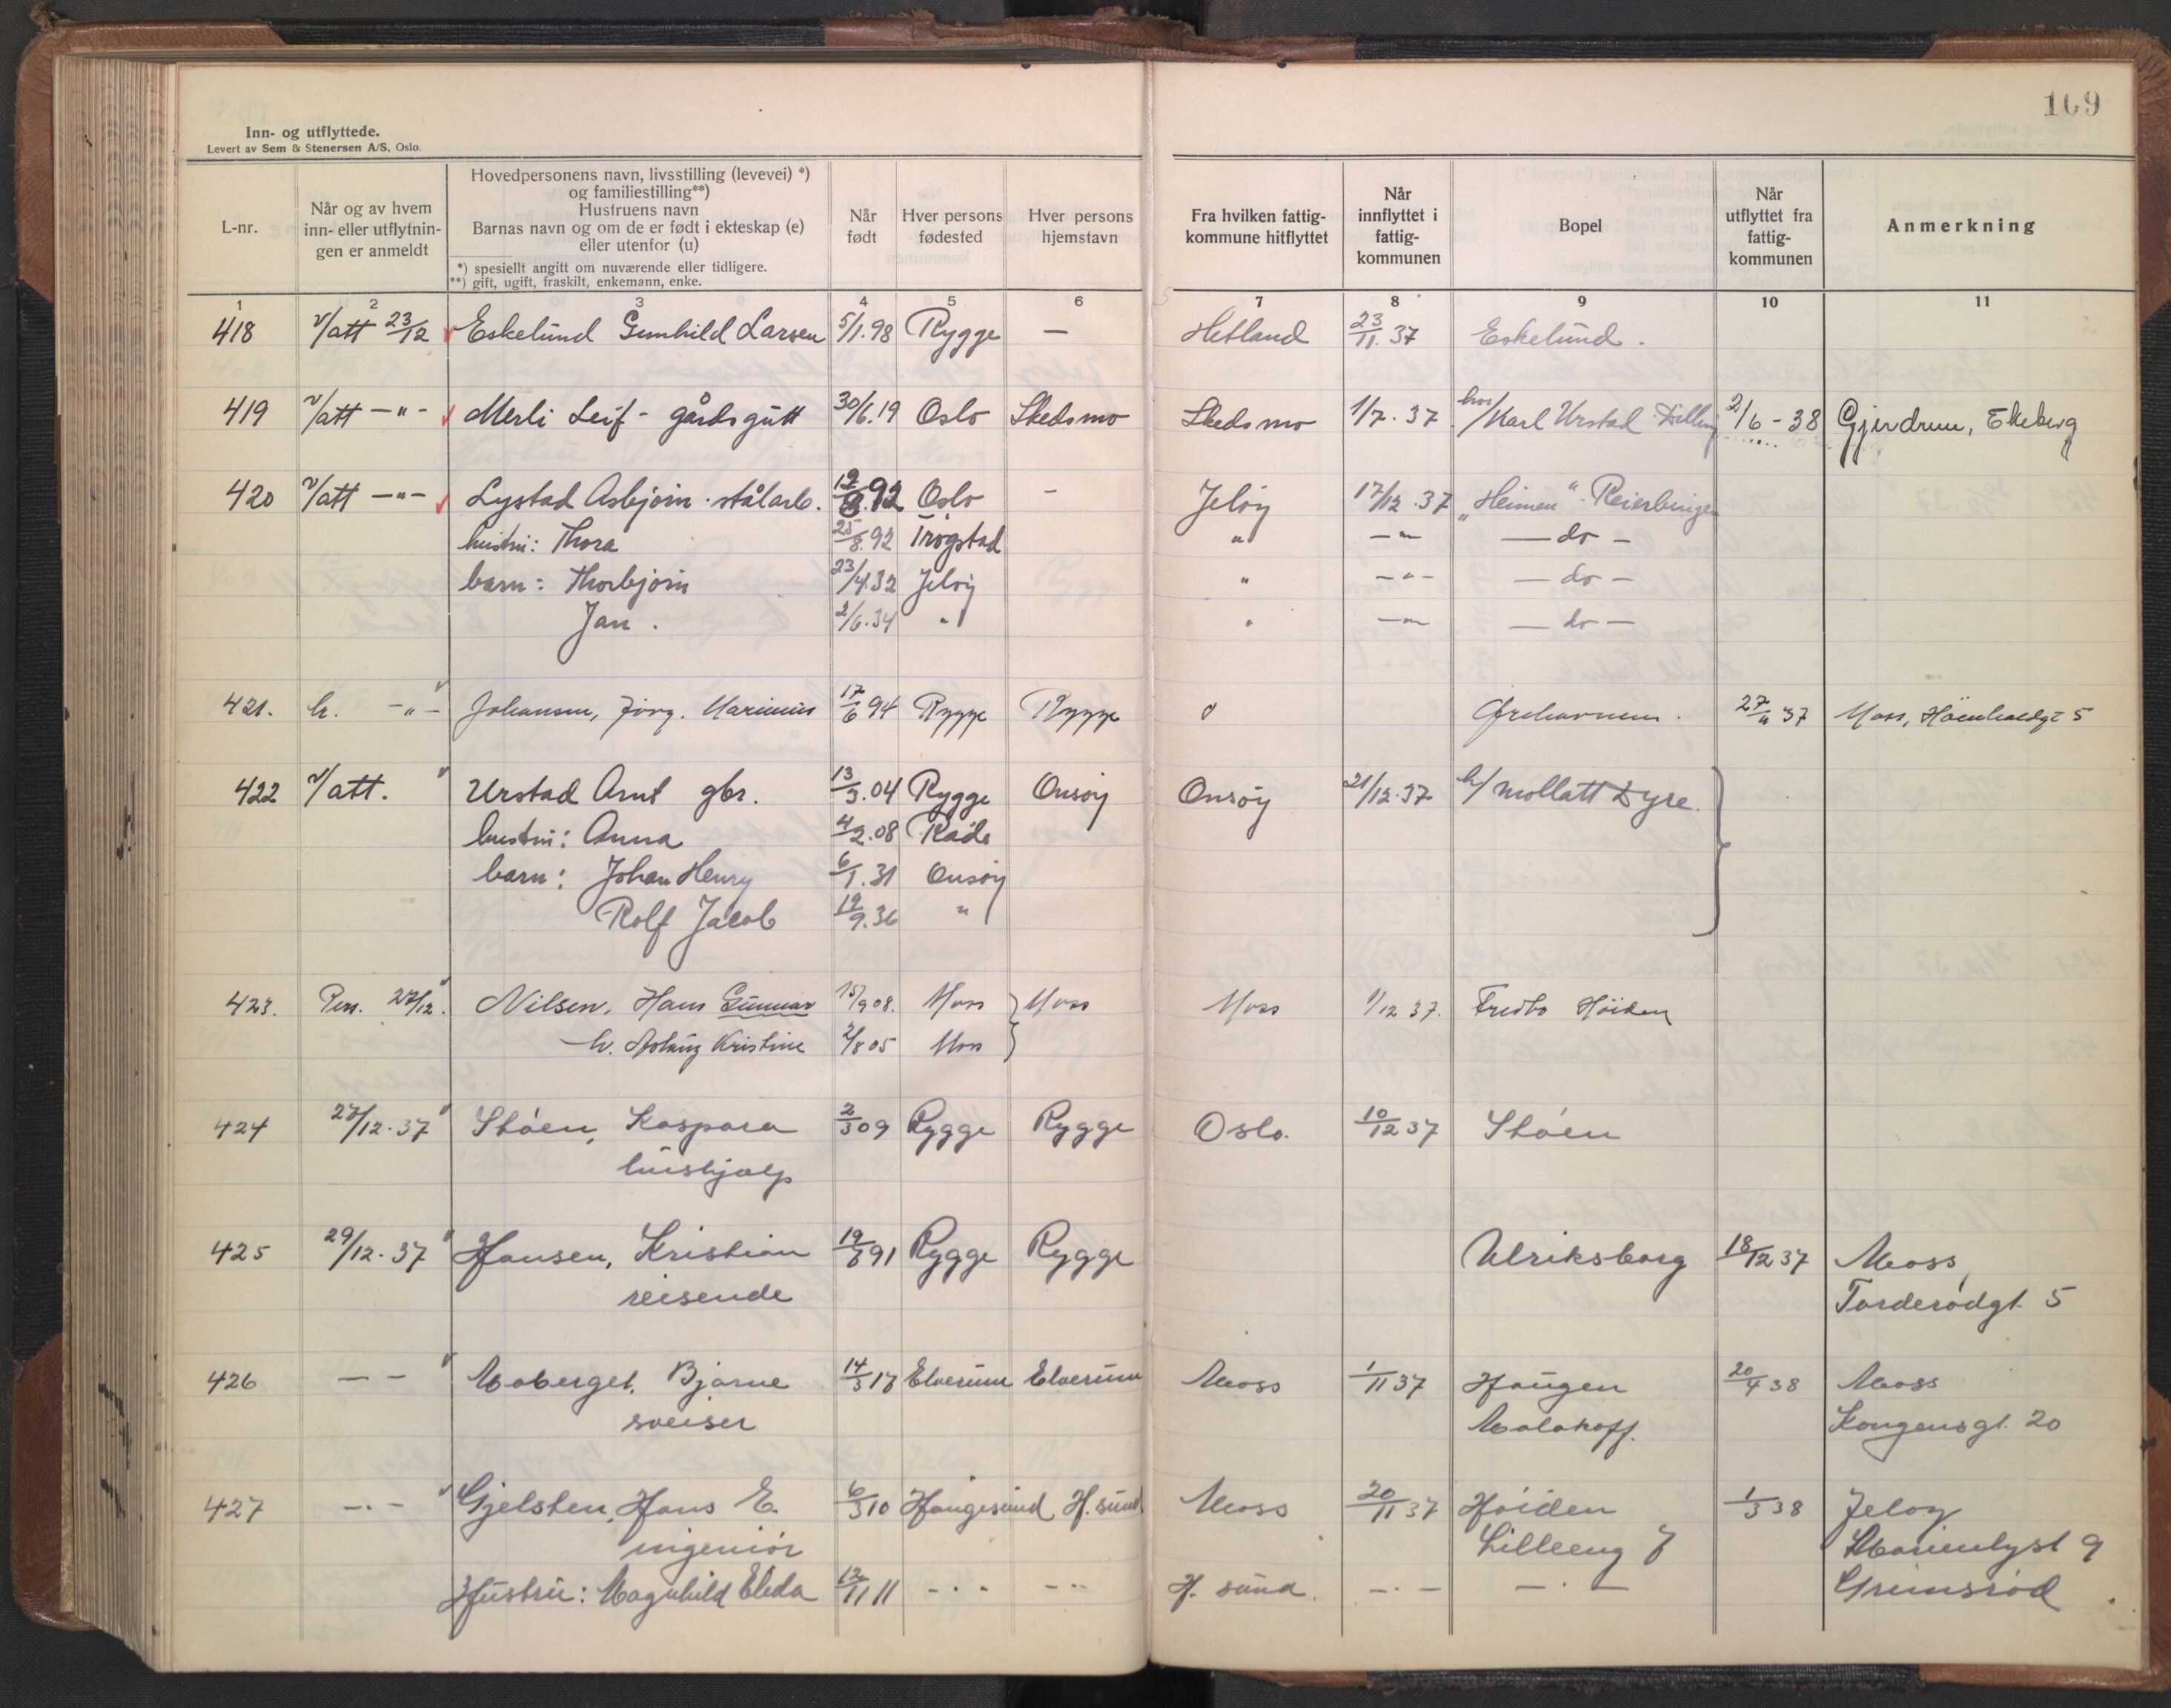 169
Inn- og utflyttede.
Levert av Sem & Stenersen A/S. Oslo.
L-nr.
Når og av hvem inn- eller utflytningen er anmeldt
Hovedpersonens navn, livsstilling (levevei) *)
og familiestilling**)
Hustruens navn
Barnas navn og om de er født i ekteskap (e)
eller utenfor (u)
*) spesiellt angitt om nuværende eller tidligere.
**) gift, ugift, fraskilt, enkemann, enke.
Når født
Hver persons fødested
Hver persons hjemstavn
Fra hvilken fattigkommune hitflyttet
Når innflyttet i fattigkommunen
Bopel
Når utflyttet fra fattigkommunen
Anmerkning
1 2 3 4 5 6 7 8 9 10 11
418 v/att 23/12 Eskelund Gunhild Larsen 5/1.98 Rygge — Hetland 23/11.37 Eskelund.
419 v/att —"— Merli Leif - gårdsgutt 30/6.19 Oslo Skedsmo Skedsmo 1/7.37 hos/Karl Urstad Dilling 2/6-38 Gjerdrum, Ekeberg
420 v/att —"— Lystad Asbjørn. stålarb. 12/8.92 Oslo - Jeløy 17/12.37 "Heimen" Reierbingen
hustru: Thora 25/8.92 Trøgstad " —"— — do —
barn: Thorbjørn 23/4.32 Jeløy " —"— — do —
Jan. 2/6.34 " " —"— — do —
421. h. —"— Johansen, Jørg. Marinius 17/6 94 Rygge Rygge 27/11 37 Moss,
422 v/att. Urstad Arnt gbr. 13/3.04 Rygge Onsøy Onsøy 21/12.37 h/ Mollatt Dyre.
hustru: Anna 4/2.08 Råde
barn: Johan Henry 6/1.31 Onsøy
Rolf Jacob 19/9.36 "
423. Pers. 27/12. Nilsen, Hans Gunnar 15/9 08. Moss Moss Moss 1/12 37. Fredbo Høiden
h. Aslaug Kristine 2/8 05 Moss
424 27/12.37 Støen, Kaspara 2/3 09 Rygge Rygge Oslo. 10/12 37 Støen
hushjælp
425 29/12.37 Hansen, Kristian 19/6 91 Rygge Rygge Ulriksborg 18/12 37 Moss,
reisende Torderødgt. 5
426 — — Moberget, Bjarne 14/3 17 Elverum Elverum Moss 1/11 37 Haugen 20/4 38 Moss
sveiser Malakoff. Kongensgt. 20
427 —.— Gjelsten, Hans E. 6/3 10 Haugesund H.sund Moss 20/11 37 Høiden 1/3 38 Jeløy
ingeniør Lilleeng 7 Marienlyst 9
Hustru: Magnhild Elida 12/11 11 -.- -.- H. sund. —.— —.— Grimsrød